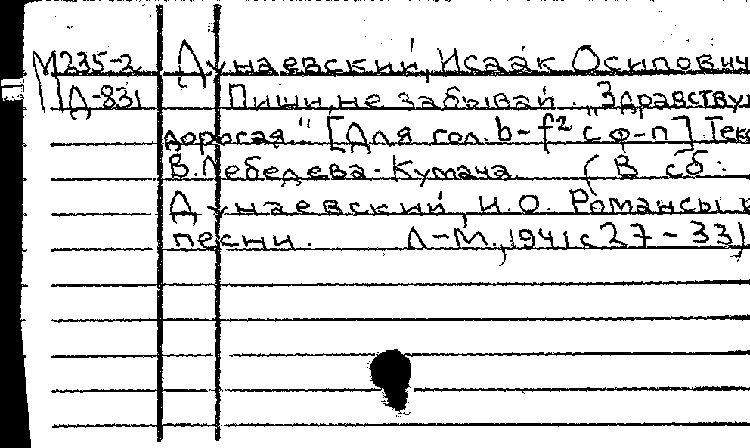 М235-2 Дунаевский, Исаак Осипович
Д-831 Пиши, не забывай. „Здравствуй
дорогая..." [Для гол. b-f² с ф-п]. Тек
В. Лебедева-Кумача. (В сб:
Дунаевский, И.О. Романсы и
песни. Л-М., 1941 с 27-33)